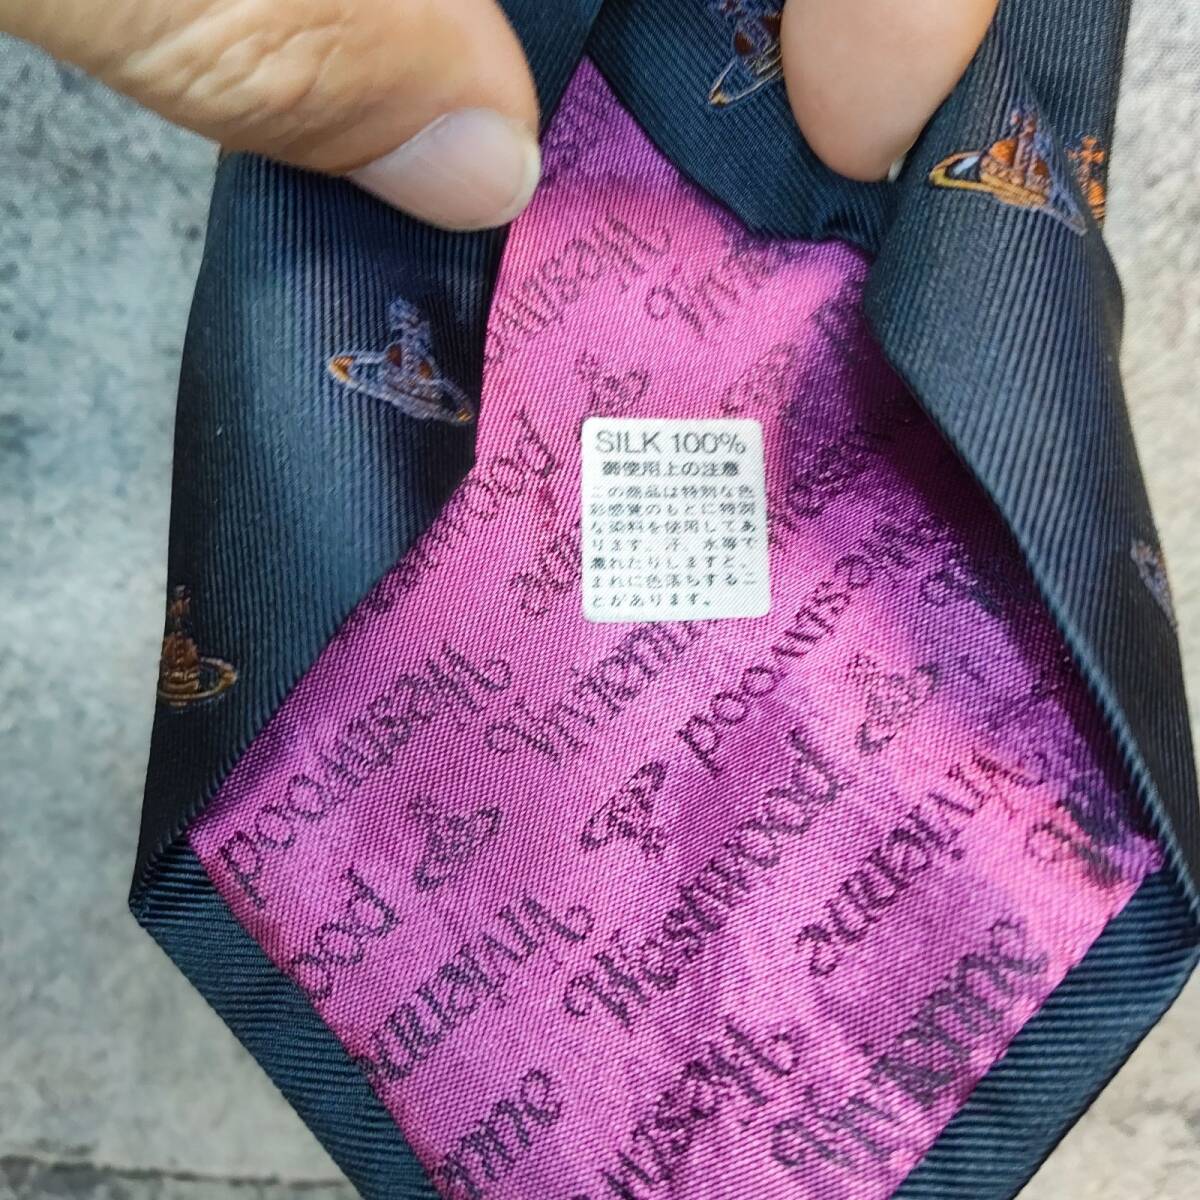 Westwood
Vivienne
SILK 100%
御使用上の注意
この商品は特別な色
彩感覚のもとに特別
な染料を使用してあ
ります。汗、水等で
濡れたりしますと、
まれに色落ちするこ
とがあります。
Westwood
Vivienne
Westwood
Vivienne
Westwood
Vivienne